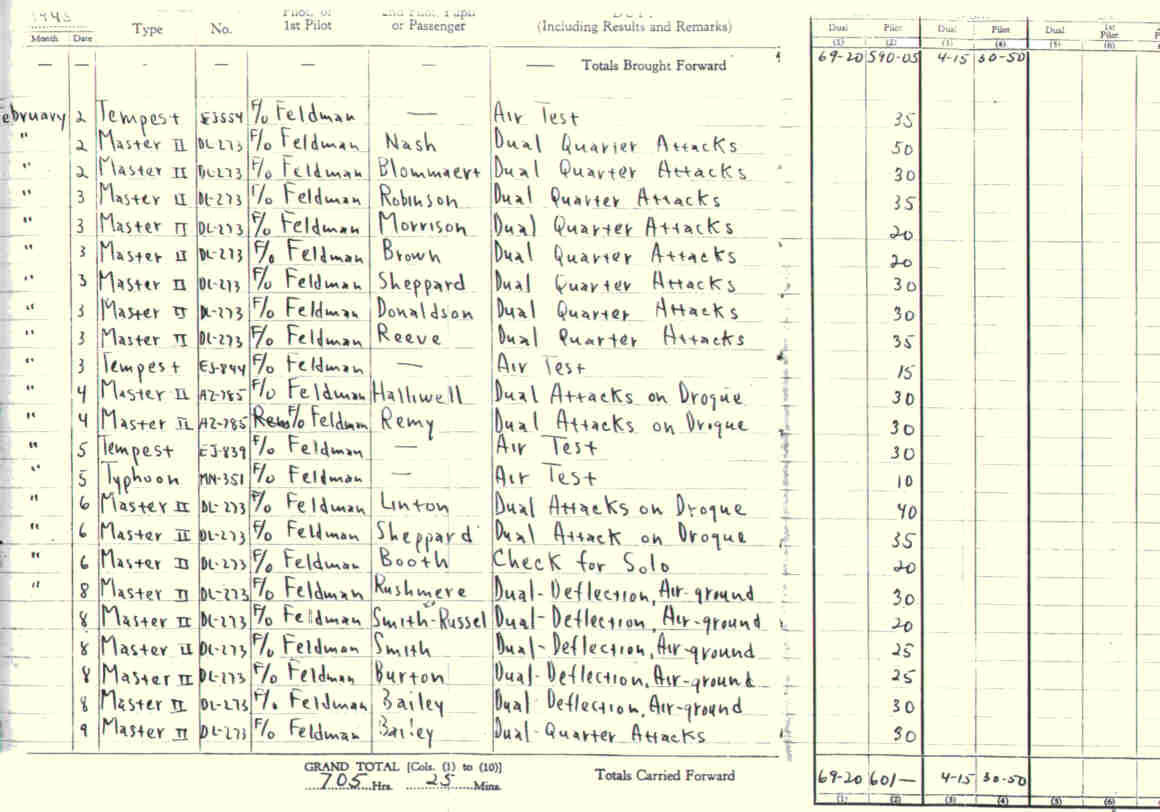 1945 Pilot, or 2nd Pilot, Pupil DUTY
Month Date Type No. 1st Pilot or Passenger (Including Results and Remarks) Dual Pilot Dual Pilot Dual 1st Pilot
(1) (2) (3) (4) (5) (6)
— — — — — — — Totals Brought Forward 69-20 590-05 4-15 30-50
February 2 Tempest EJ554 F/O Feldman — Air Test 35
" 2 Master II DL-273 F/O Feldman Nash Dual Quarter Attacks 50
" 2 Master II DL-273 F/O Feldman Blommaert Dual Quarter Attacks 30
" 3 Master II DL-273 F/O Feldman Robinson Dual Quarter Attacks 35
" 3 Master II DL-273 F/O Feldman Morrison Dual Quarter Attacks 20
" 3 Master II DL-273 F/O Feldman Brown Dual Quarter Attacks 20
" 3 Master II DL-273 F/O Feldman Sheppard Dual Quarter Attacks 30
" 3 Master II DL-273 F/O Feldman Donaldson Dual Quarter Attacks 30
" 3 Master II DL-273 F/O Feldman Reeve Dual Quarter Attacks 35
" 3 Tempest EJ-844 F/O Feldman — Air Test 15
" 4 Master II AZ-785 F/O Feldman Halliwell Dual Attacks on Drogue 30
" 4 Master II AZ-785 F/O Feldman Remy Dual Attacks on Drogue 30
" 5 Tempest EJ-839 F/O Feldman — Air Test 30
" 5 Typhoon MN-351 F/O Feldman — Air Test 10
" 6 Master II DL-273 F/O Feldman Linton Dual Attacks on Drogue 40
" 6 Master II DL-273 F/O Feldman Sheppard Dual Attack on Drogue 35
" 6 Master II DL-273 F/O Feldman Booth Check for Solo 20
" 8 Master II DL-273 F/O Feldman Rushmere Dual-Deflection, Air-ground 30
8 Master II DL-273 F/O Feldman Smith-Russel Dual-Deflection, Air-ground 20
8 Master II DL-273 F/O Feldman Smith Dual-Deflection, Air-ground 25
8 Master II DL-273 F/O Feldman Burton Dual-Deflection, Air-ground 25
8 Master II DL-273 F/O Feldman Bailey Dual-Deflection, Air-ground 30
9 Master II DL-273 F/O Feldman Bailey Dual-Quarter Attacks 30
GRAND TOTAL [Cols. (1) to (10)] Totals Carried Forward 69-20 601— 4-15 30-50
705 Hrs. 25 Mins. (1) (2) (3) (4) (5) (6)